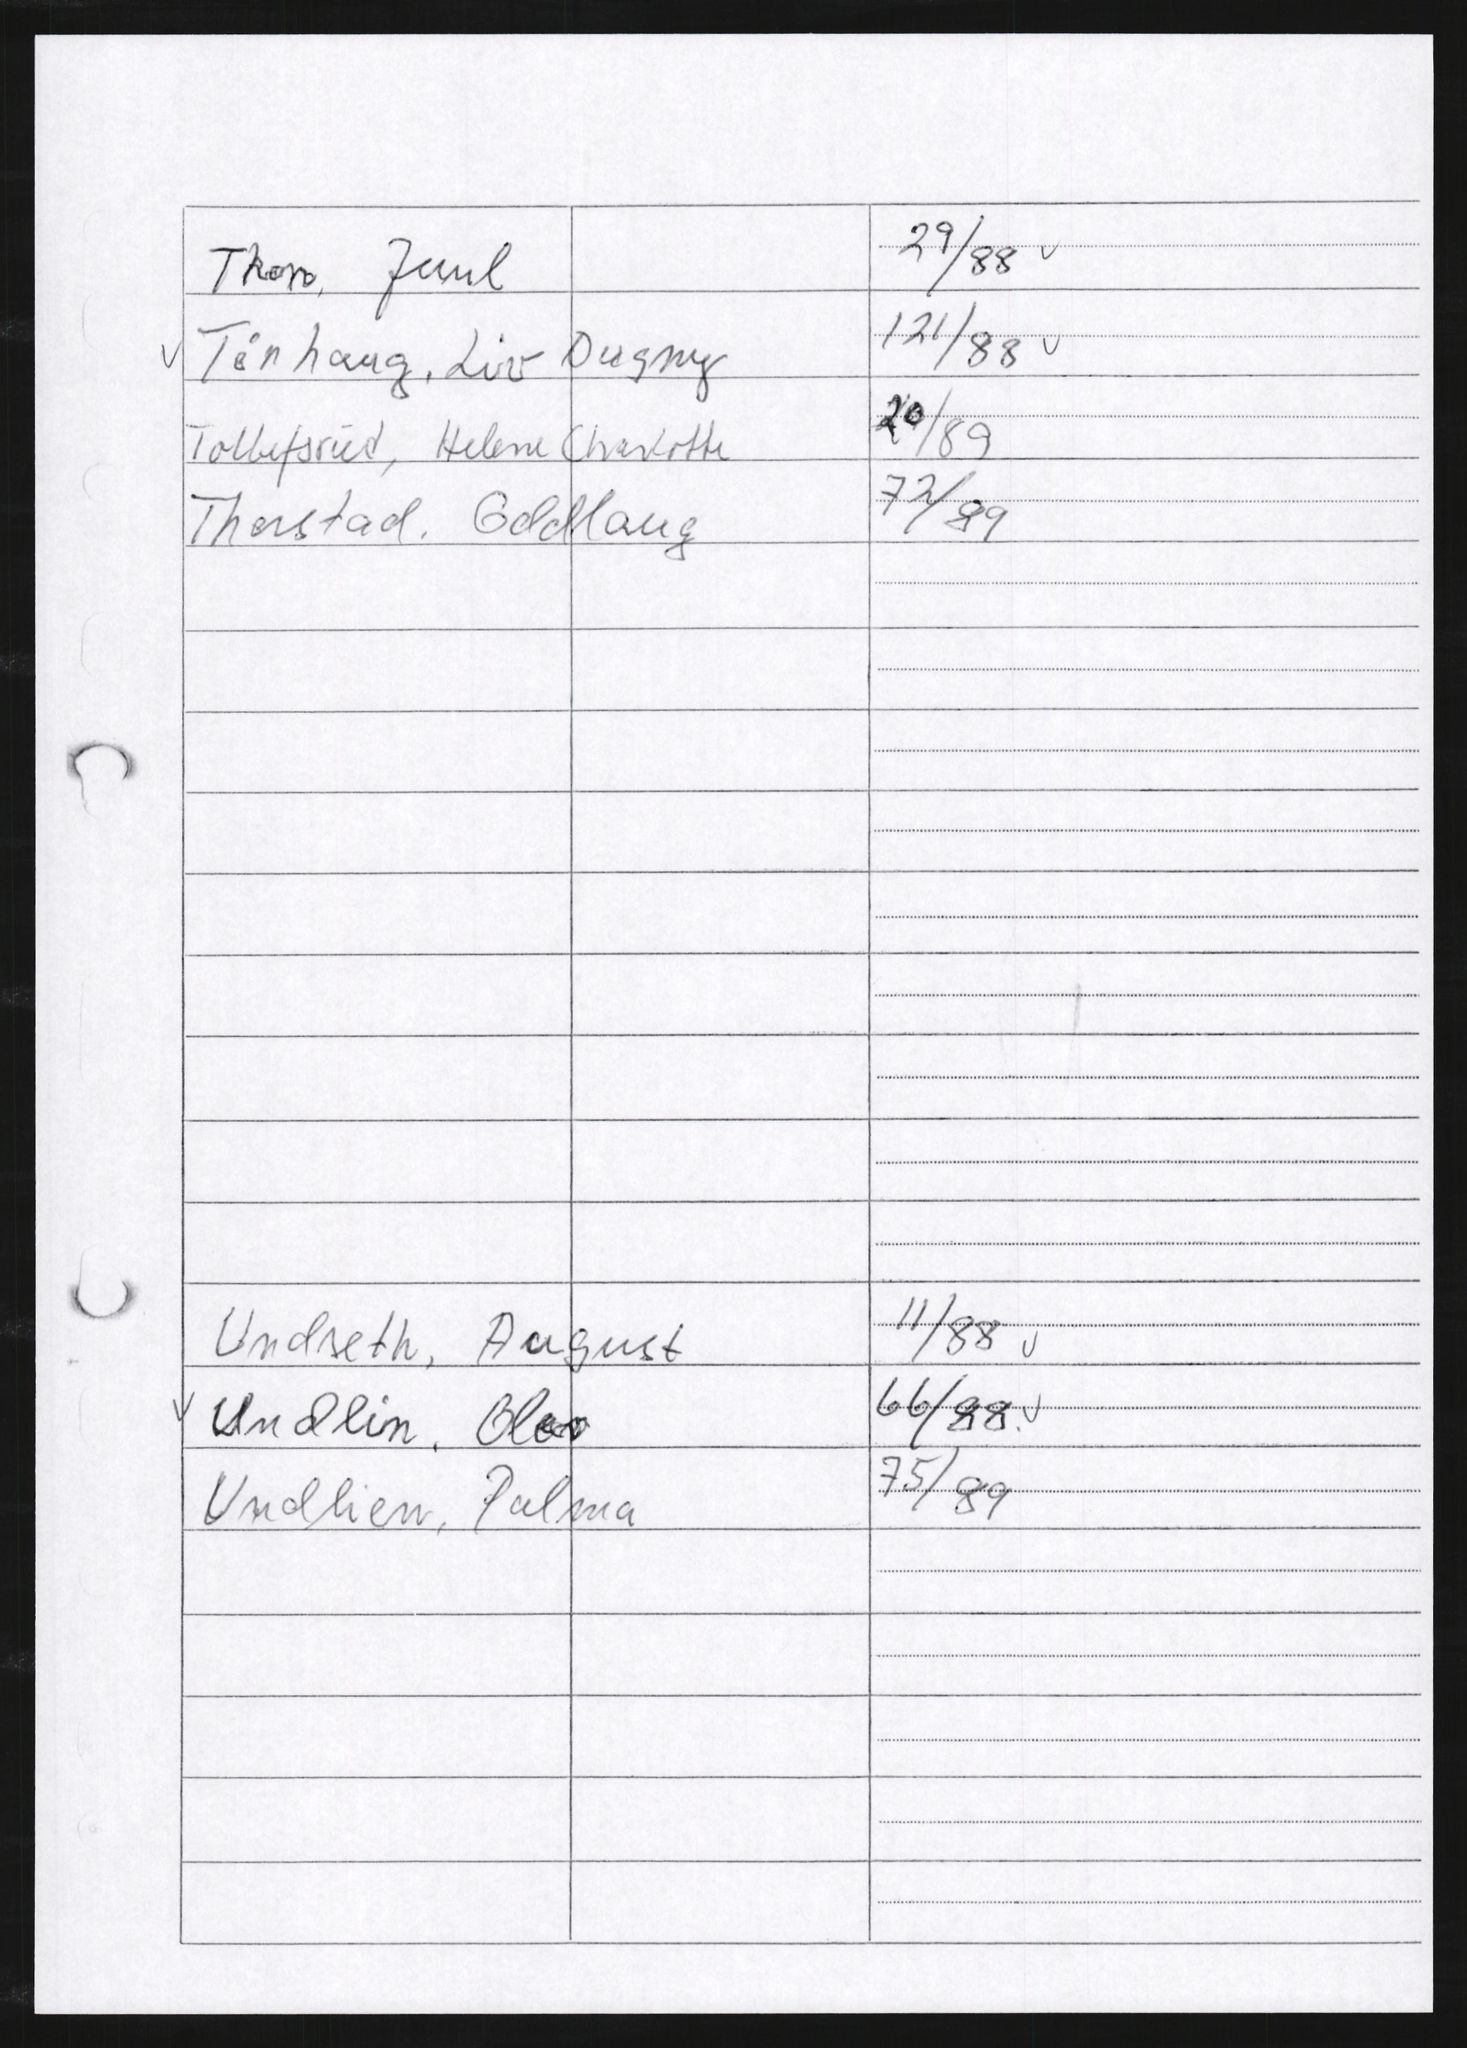 Thoro, Juul 29/88 v
v Tönhaug, Liv Dagny 121/88 v
Tollefsrud, Helene Charlotte 20/89
Thorstad. Oddlaug 72/89
Undseth, August 11/88 v
v Undlin, Olav 66/88. v
Undlien, Palma 75/89